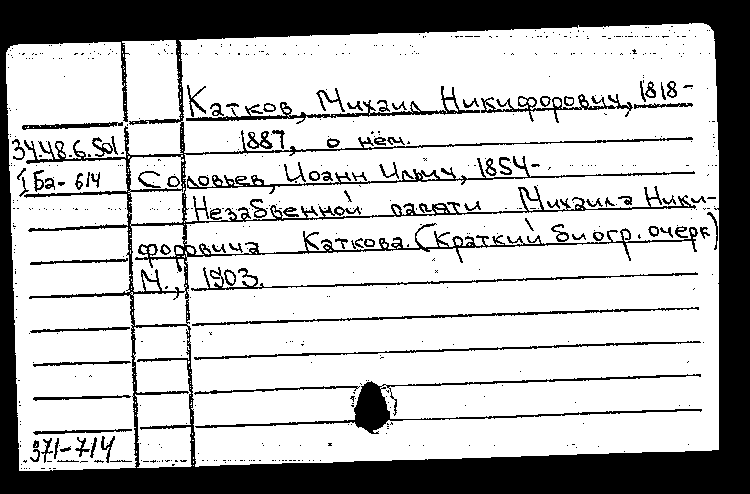 Катков, Михаил Никифорович, 1818-
34.48.6.Sol. 1887, о нём.
I Ба-614 Соловьев, Иоанн Ильич, 1854-
Незабвенной памяти Михаила Ники-
форовича Каткова. (Краткий биогр. очерк)
М., 1903.
371-714